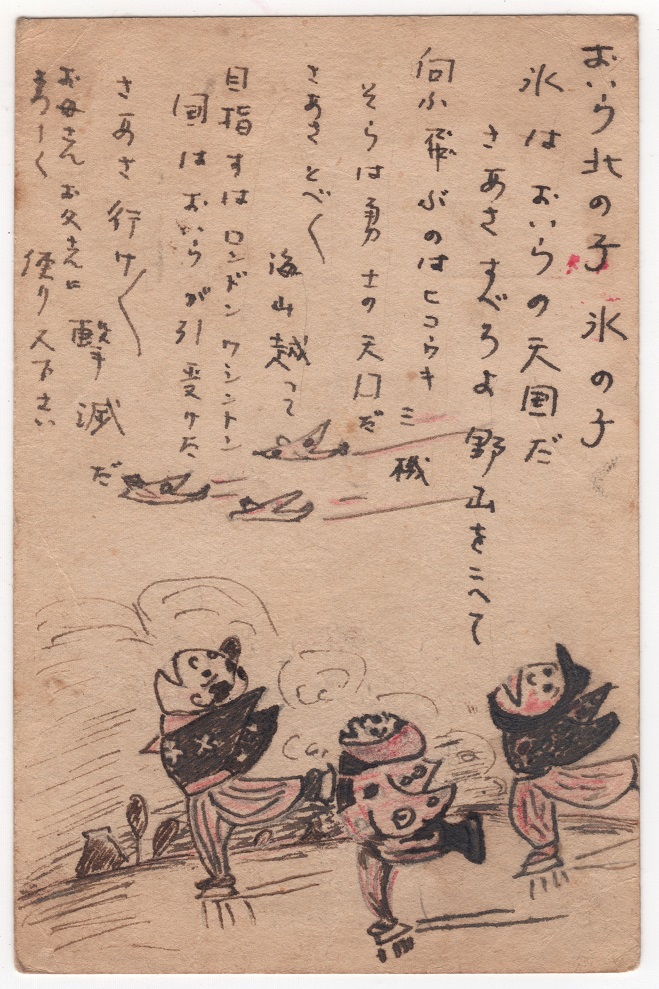 おいら北の子 氷の子
氷はおいらの天国だ
さあさすべろよ野山をこへて
向ふ飛ぶのはヒコウキ三機
そらは勇士の天口だ
さあさとべ〱
海山越って
目指すはロンドンワシントン
国はおいらが引受けた
さあさ行け〱
撃滅だ
お母さんお父さんに
便り下さい